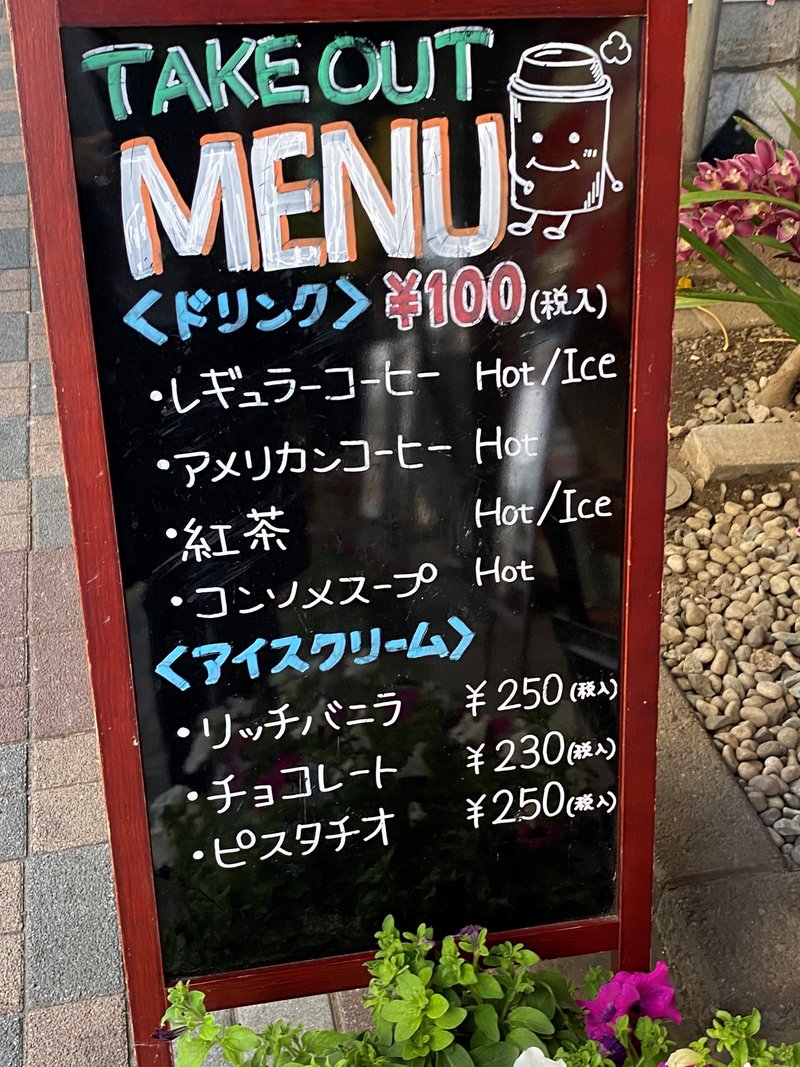 TAKE OUT
MENU
〈ドリンク〉 ¥100(税入)
・レギュラーコーヒー Hot/Ice
・アメリカンコーヒー Hot
・紅茶 Hot/Ice
・コンソメスープ Hot
〈アイスクリーム〉
・リッチバニラ ¥250(税入)
・チョコレート ¥230(税入)
・ピスタチオ ¥250(税入)